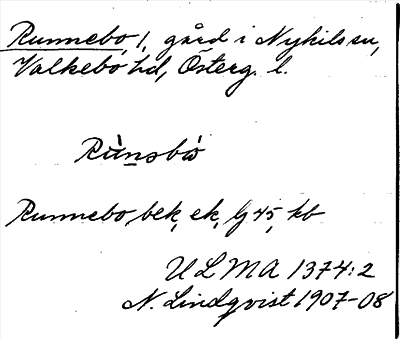 Runnebo, 1, gård i Nykils sn,
Valkebo hd, Österg. l.
Rùnəbò
Runnebo bek, ek, G 45, kb
ULMA 1374:2
N. Lindqvist 1907-08